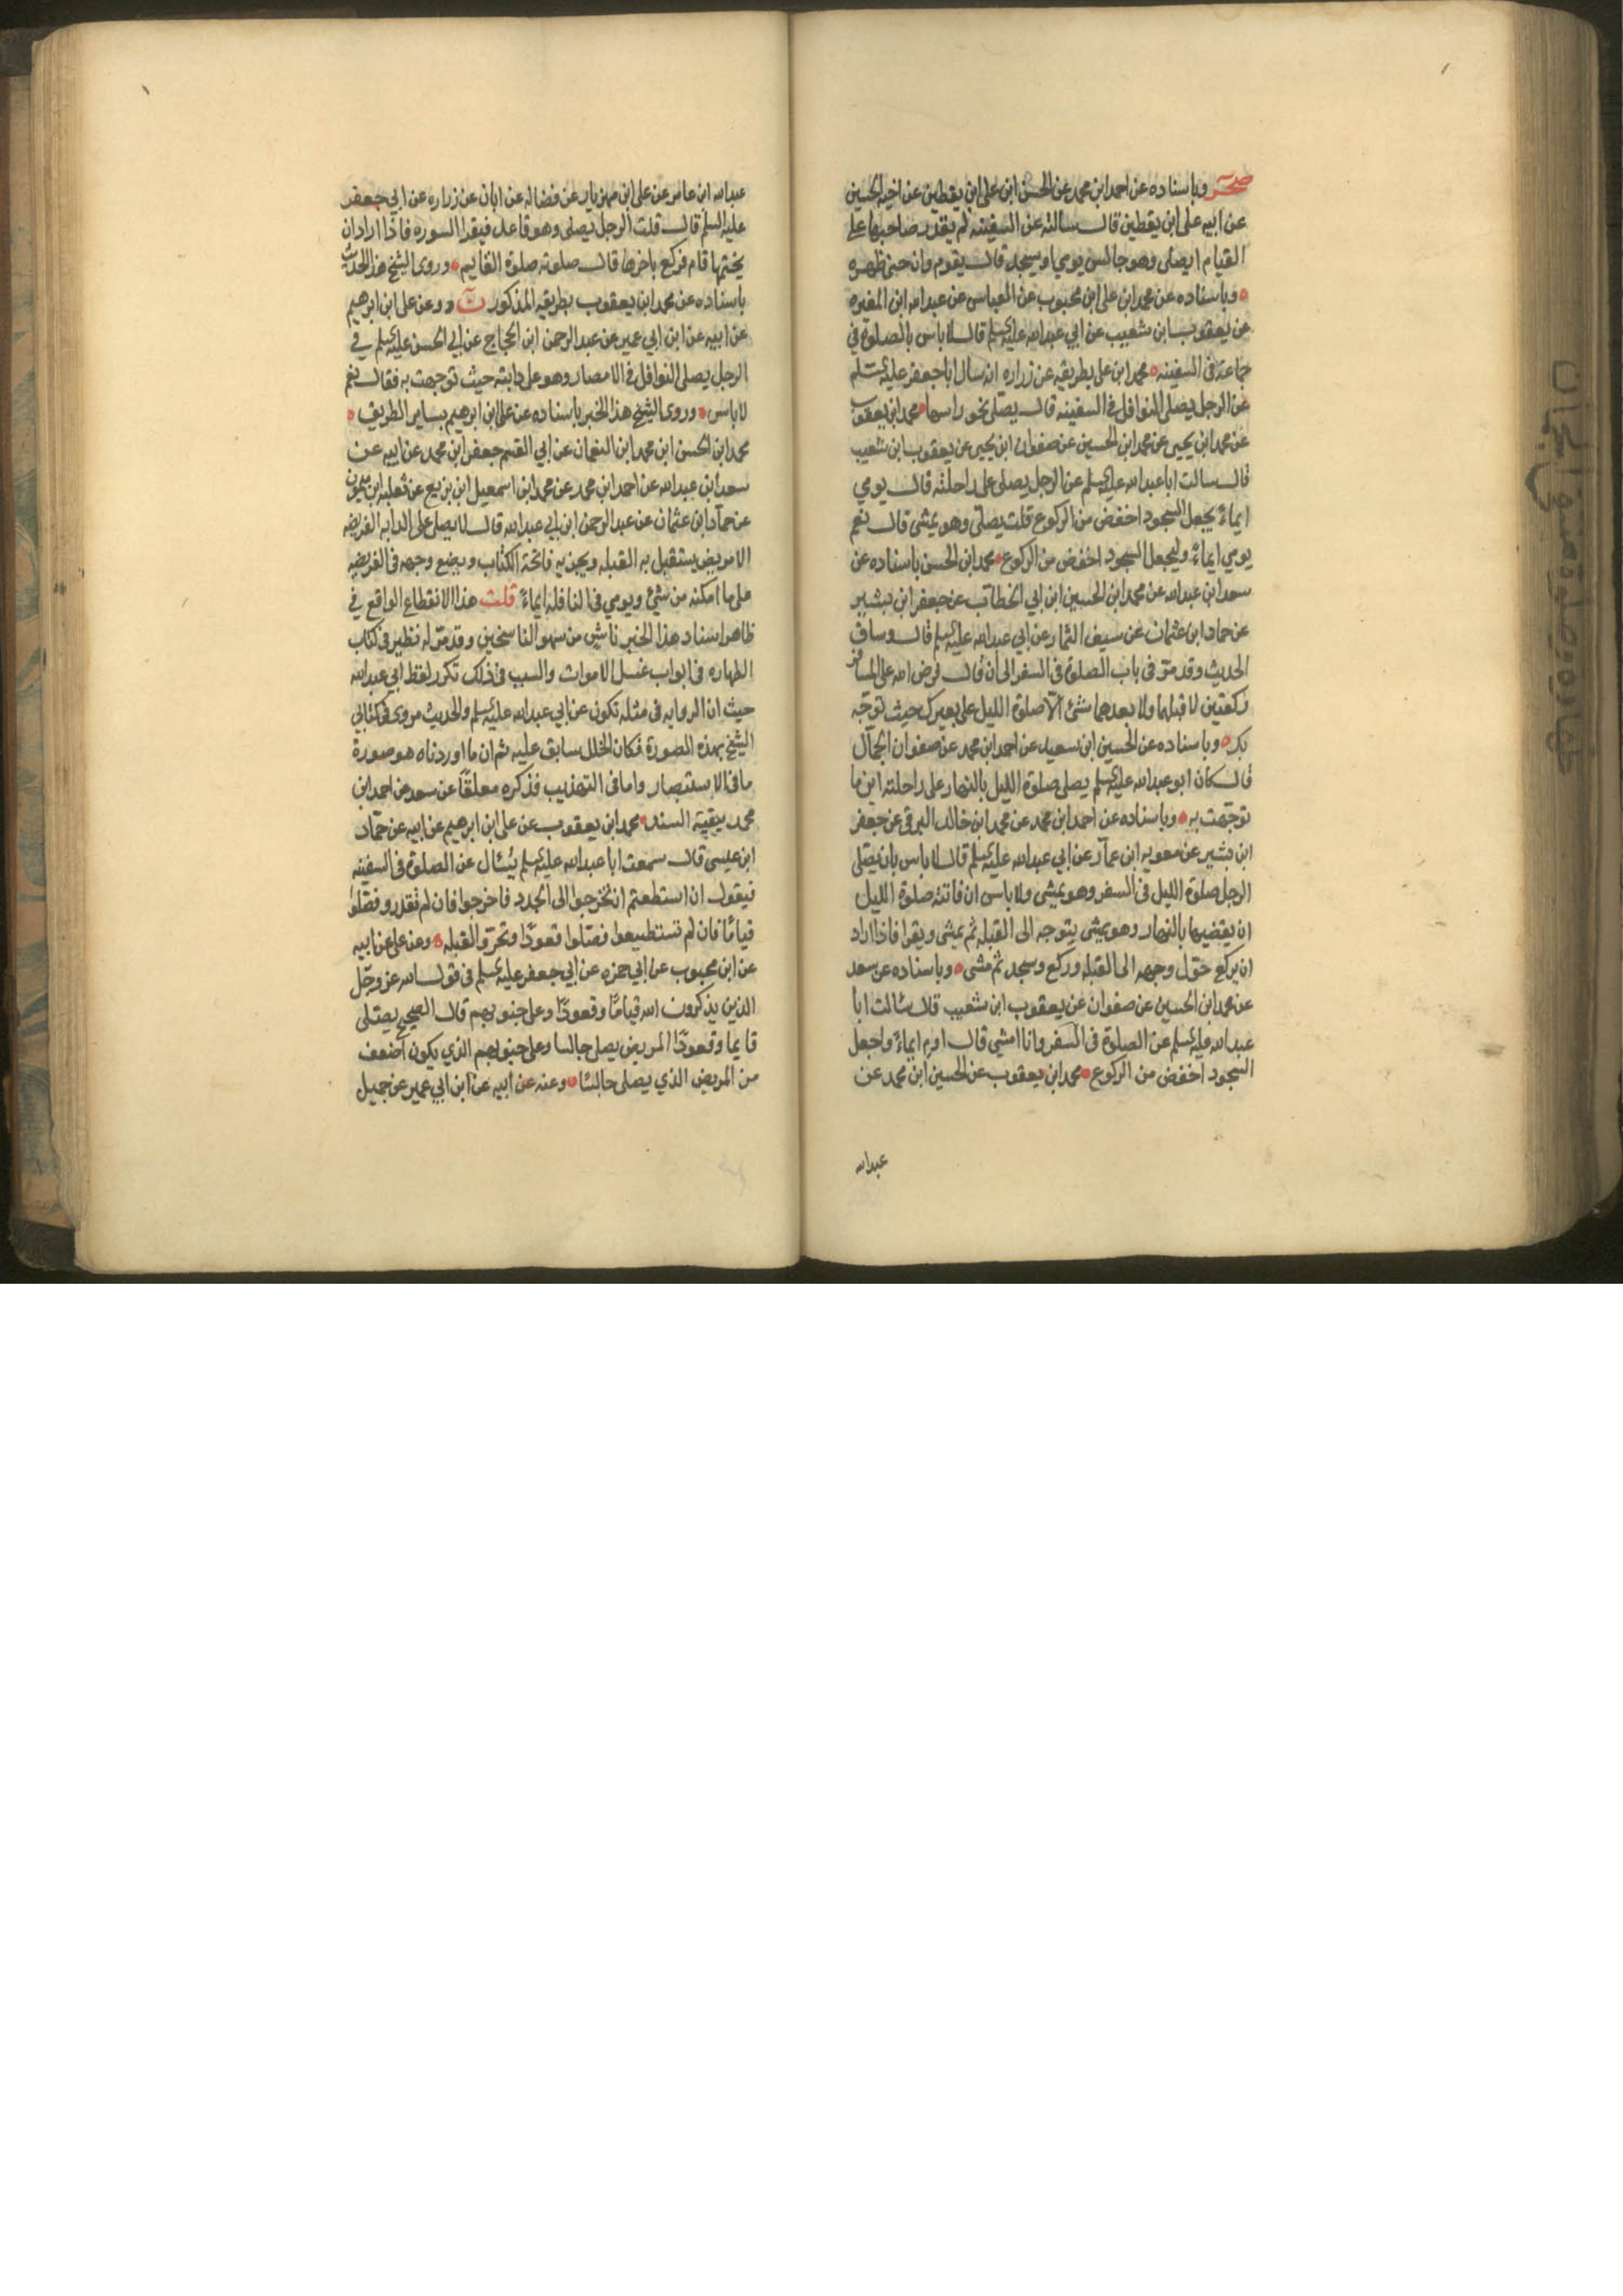 صحر وباسناده عن احمد ابن محمد عن الحسن ابن على ابن يقطين عن اخيه الحسين
عن ابيه على ابن يقطين قال سالته عن السفينه لم يقدر صاحبها على
القيام ايصلى وهو جالس يومي او يسجد قال يقوم وان حنى ظهره
وباسناده عن محمد ابن على ابن محبوب عن العباس عن عبدالله ابن المغيره
عن يعقوب ابن شعيب عن ابي عبدالله عليه السلم قال لاباس بالصلوة في
جماعة فى السفينه محمد ابن على بطريقه عن زراره انه سال ابا جعفر عليه السلم
عن الرجل يصلى النوافل فى السفينه قال يصلى نحو راسها محمد ابن يعقوب
عن محمد ابن يحيى عن محمد ابن الحسين عن صفوان ابن يحيى عن يعقوب ابن شعيب
قال سالت ابا عبدالله عليه السلم عن الرجل يصلى على راحلته قال يومي
ايماءً يجعل السجود اخفض من الركوع قلت يصلى وهو يمشى قال نعم
يومي ايماءً وليجعل السجود اخفض من الركوع محمد ابن الحسن باسناده عن
سعد ابن عبدالله عن محمد ابن الحسين ابن ابي الخطاب عن جعفر ابن بشير
عن حماد ابن عثمان عن سيف التمار عن ابي عبدالله عليه السلم قال وساق
الحديث وقد مر فى باب الصلوة فى السفر الى ان قال فرض الله على المسافر
ركعتين لا قبلهما ولا بعدهما شئ الا صلوة الليل على بعيرك حيث توجه
بك وباسناده عن الحسين ابن سعيد عن احمد ابن محمد عن صفوان الجمال
قال كان ابو عبدالله عليه السلم يصلى صلوة الليل بالنهار على راحلته اين ما
توجهت به وباسناده عن احمد ابن محمد عن محمد ابن خالد البرقى عن جعفر
ابن بشير عن معويه ابن عمار عن ابي عبدالله عليه السلم قال لا باس بان يصلى
الرجل صلوة الليل فى السفر وهو يمشى ولا باس ان فاتته صلوة الليل
ان يقضيها بالنهار وهو يمشى يتوجه الى القبله ثم يمشى ويقرا فاذا اراد
ان يركع حول وجهه الى القبله وركع وسجد ثم مشى وباسناده عن سعد
عن محمد ابن الحسين عن صفوان عن يعقوب ابن شعيب قال سالت ابا
عبدالله عليه السلم عن الصلوة فى السفر وانا امشى قال اوم ايماءً واجعل
السجود اخفض من الركوع محمد ابن يعقوب عن الحسين ابن محمد عن
عبدالله
عبدالله ابن عامر عن على ابن مهزيار عن فضاله عن ابان عن زراره عن ابي جعفر
عليه السلم قال قلت الرجل يصلى وهو قاعد فيقرا السوره فاذا اراد ان
يختمها قام فركع باخرها قال صلوته صلوة القايم وروى الشيخ هذا الحديث
باسناده عن محمد ابن يعقوب بطريقه المذكور ن وعن على ابن ابرهيم
عن ابيه عن ابن ابي عمير عن عبدالرحمن ابن الحجاج عن ابي الحسن عليه السلم في
الرجل يصلى النوافل فى الامصار وهو على دابته حيث توجهت به فقال نعم
لاباس وروى الشيخ هذا الخبر باسناده عن على ابن ابرهيم بساير الطريق
محمد ابن الحسن ابن محمد ابن النعمان عن ابي القسم جعفر ابن محمد عن ابيه عن
سعد ابن عبدالله عن احمد ابن محمد عن محمد ابن اسمعيل ابن بزيع عن ثعلبه ابن ميمون
عن حماد ابن عثمان عن عبدالرحمن ابن ابي عبدالله قال لا يصلى على الدابه الفريضه
الا مريض يستقبل به القبله ويجزيه فاتحة الكتاب ويضع وجهه فى الفريضه
على ما امكنه من شئ ويومي فى النافلة ايماءً قلت هذا الانقطاع الواقع في
ظاهر اسناد هذا الخبر ناش من سهو الناسخين وقد مر له نظير فى كتاب
الطهاره فى ابواب غسل الاموات والسبب فى ذلك تكرر لفظ ابي عبدالله
حيث ان الروايه فى مثله تكون عن ابي عبدالله عليه السلم والحديث مروى فى كتابي
الشيخ بهذه الصورة فكان الخلل سابق عليه ثم ان ما اوردناه هو صورة
ما فى الاستبصار واما فى التهذيب فذكره معلقًا عن سعد عن احمد ابن
محمد ببقية السند محمد ابن يعقوب عن على ابن ابرهيم عن ابيه عن حماد
ابن عيسى قال سمعت ابا عبدالله عليه السلم يسال عن الصلوة فى السفينه
فيقول ان استطعتم ان تخرجوا الى الجدد فاخرجوا فان لم تقدروا فصلوا
قيامًا فان لم تستطيعوا فصلوا قعودًا وتحروا القبله وعنه على عن ابيه
عن ابن محبوب عن ابي حمزه عن ابي جعفر عليه السلم فى قول الله عز وجل
الذين يذكرون الله قيامًا وقعودًا وعلى جنوبهم قال الصحيح يصلى
قايما وقعودًا المريض يصلى جالسا وعلى جنوبهم الذي يكون اضعف
من المريض الذي يصلى جالسًا وعنه عن ابيه عن ابن ابي عمير عن جميل